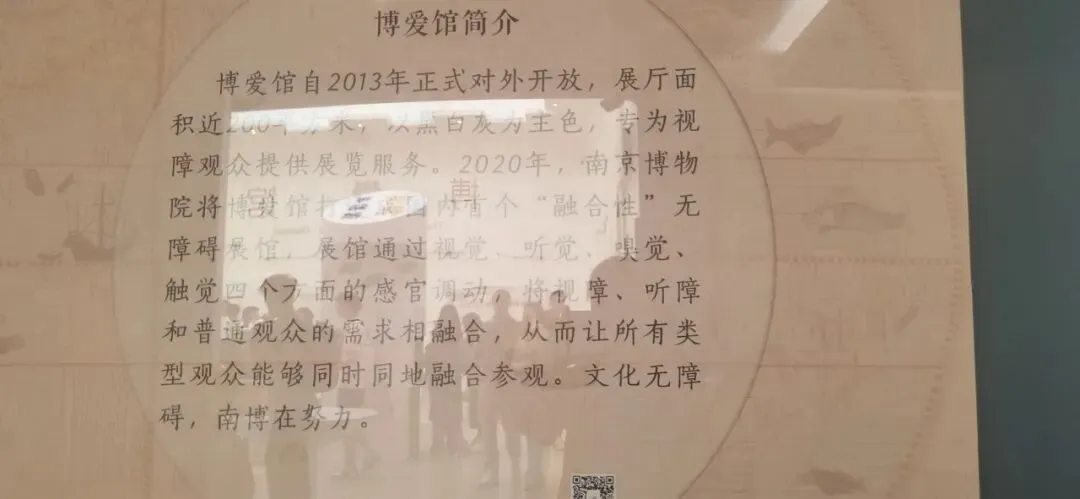 博爱馆简介
博爱馆自2013年正式对外开放，展厅面
积近200平方米，以黑白灰为主色，专为视
障观众提供展览服务。2020年，南京博物
院将博爱馆打 国内首个“融合性”无
障碍展馆，展馆通过视觉、听觉、嗅觉、
触觉四个方面的感官调动，将视障、听障
和普通观众的需求相融合，从而让所有类
型观众能够同时同地融合参观。文化无障
碍，南博在努力。